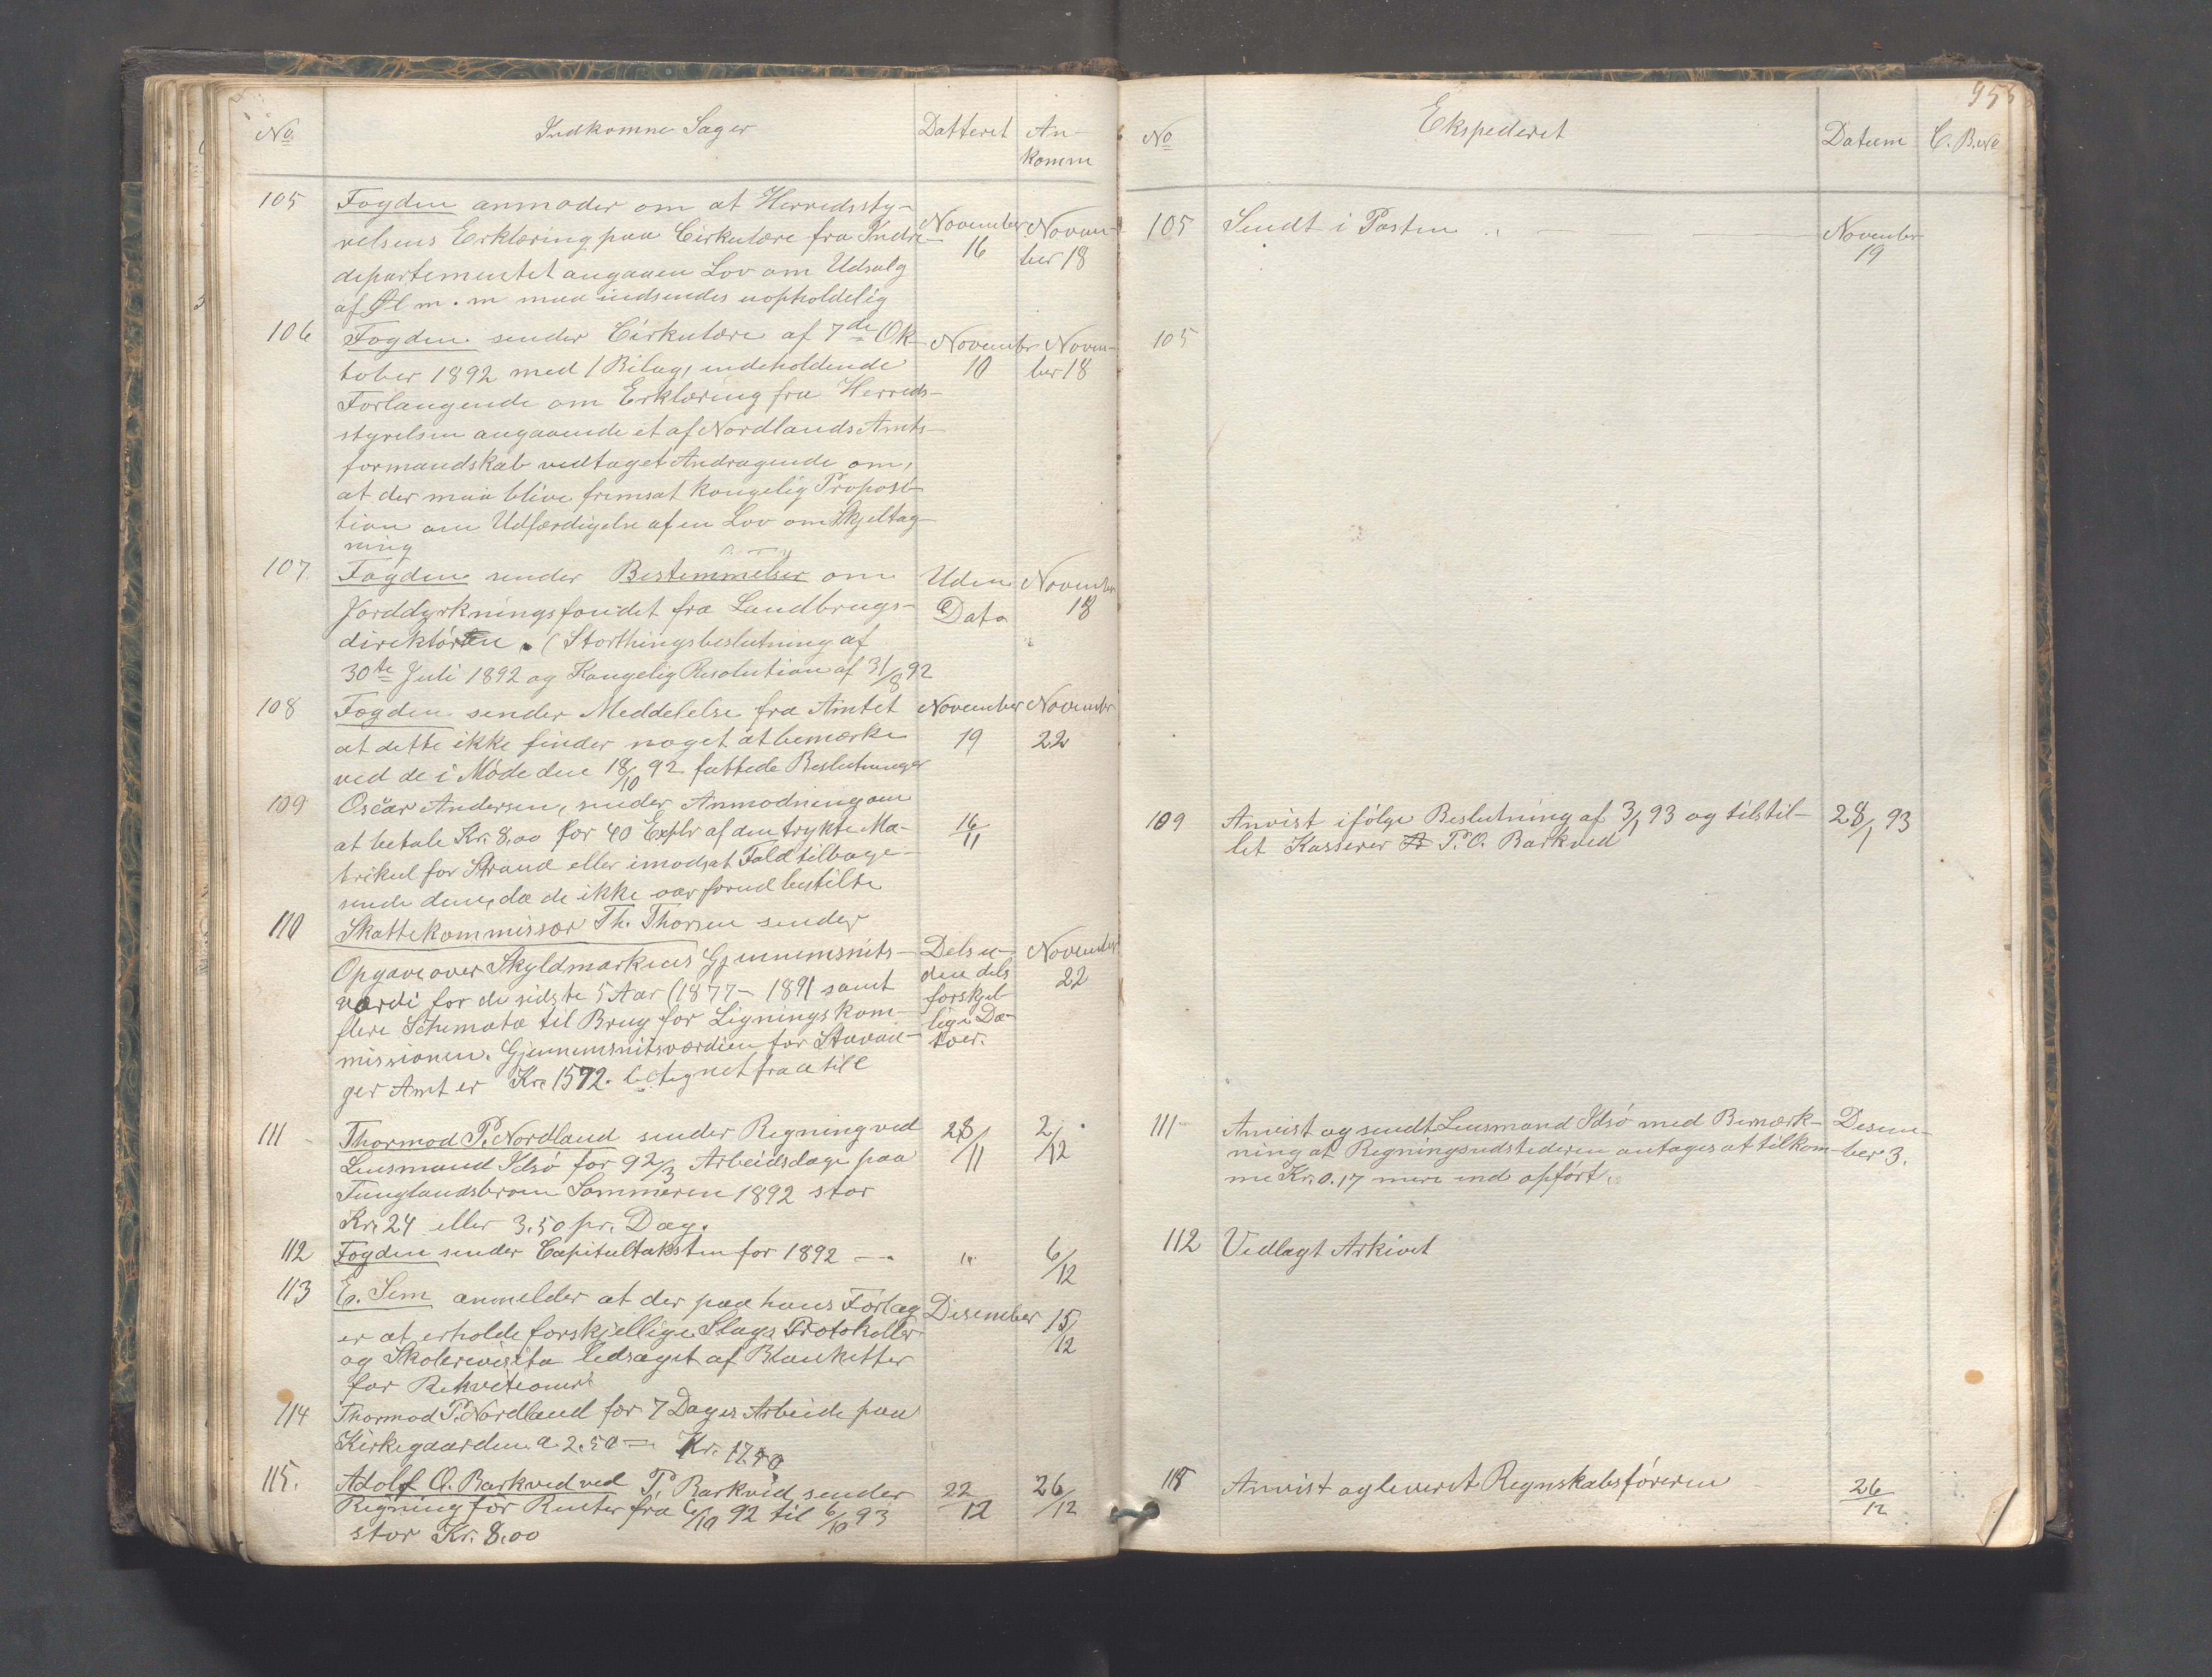 No Indkomne Sager Datteret An-
komm
105 Fogden anmoder om at Herredssty-
relsens Erklæring paa Cirkulære fra Indre- November Novem-
departementet angaaen Lov om Udsalg 16 ber 18
af Øl m.m maa indsendes uopholdelig
106 Fogden sender Cirkulære af 7de Ok- November Novem-
tober 1892 med 1 Bilag, indeholdende 10 ber 18
Forlangende om Erklæring fra Herreds-
styrelsen angaaende et af Nordlands Amts-
formandskab vedtaget Andragende om,
at der maa blive fremsat kongelig Proposi-
tion om Udfærdigelse af en Lov om Skjeltag-
ning
107. Fogden sender Bestemmelser om Uden November
Jorddyrkningsfondet fra Landbrugs- Data 18
direktøren. (Storthingsbeslutning af
30te Juli 1892 og Kongelig Resolution af 31/8 92
108 Fogden sender Meddelelse fra Amtet November November
at dette ikke finder noget at bemærke 19 22
ved de i Møde den 18/10 92 fattede Beslutninger
109 Oscar Andersen, sender Anmodning om
at betale Kr. 8,00 for 40 Explr af den trykte Ma- 16/11
trikul for Strand eller imodsat Fald tilbage-
sende dem, da de ikke var forud bestilte
110 Skattekommissær Th. Thorsen sender
Opgave over Skyldmarkens Gjennemsnits- Dels u- November
værdi for de sidste 5 Aar (1877- 1891 samt den dels 22
flere Schemata til Brug for Ligningskom- forskjel-
missionen. Gjennemsnitsværdien for Stavan- lige Da-
ger Amt er Kr. 1572. betegnet fra a til l toer.
111 Thormod P. Nordland sender Regning ved 28/11 2/12
Lensmand Idsø for 9 2/3 Arbeidsdage paa
Tunglandsbroen Sommeren 1892 stor
Kr. 24 eller 3.50 pr. Dag.
112 Fogden sender Capitultaksten for 1892 —. " 6/12
113 E. Sem anmelder at der paa hans Forlag Desember 15/12
er at erholde forskjellige Slags Protokoller
og Skolerevisita ledsaget af Blanketter
for Rekvitioner
114 Thormod P. Nordland for 7 Dages Arbeide paa
Kirkegaarden a 2.50 = Kr. 17.50
115. Adolf O. Barkved ved P. Barkved sender 22/12 26/12
Regning for Renter fra 6/10 92 til 6/10 93
stor Kr. 8.00
955
No Ekspederet Datum C.B. No
105 Sendt i Posten November
19
105
109 Anvist ifølge Beslutning af 3/1 93 og tilstil- 28/1 93
let Kasserer P.O. Barkved
111 Anvist og sendt Lensmand Idsø med Bemærk- Desem-
ning at Regningsudstederen antages at tilkom- ber 3.
me Kr. 0.17 mere end opført.
112 Vedlagt Arkivet
115 Anvist og leveret Regnskabsføreren 26/12